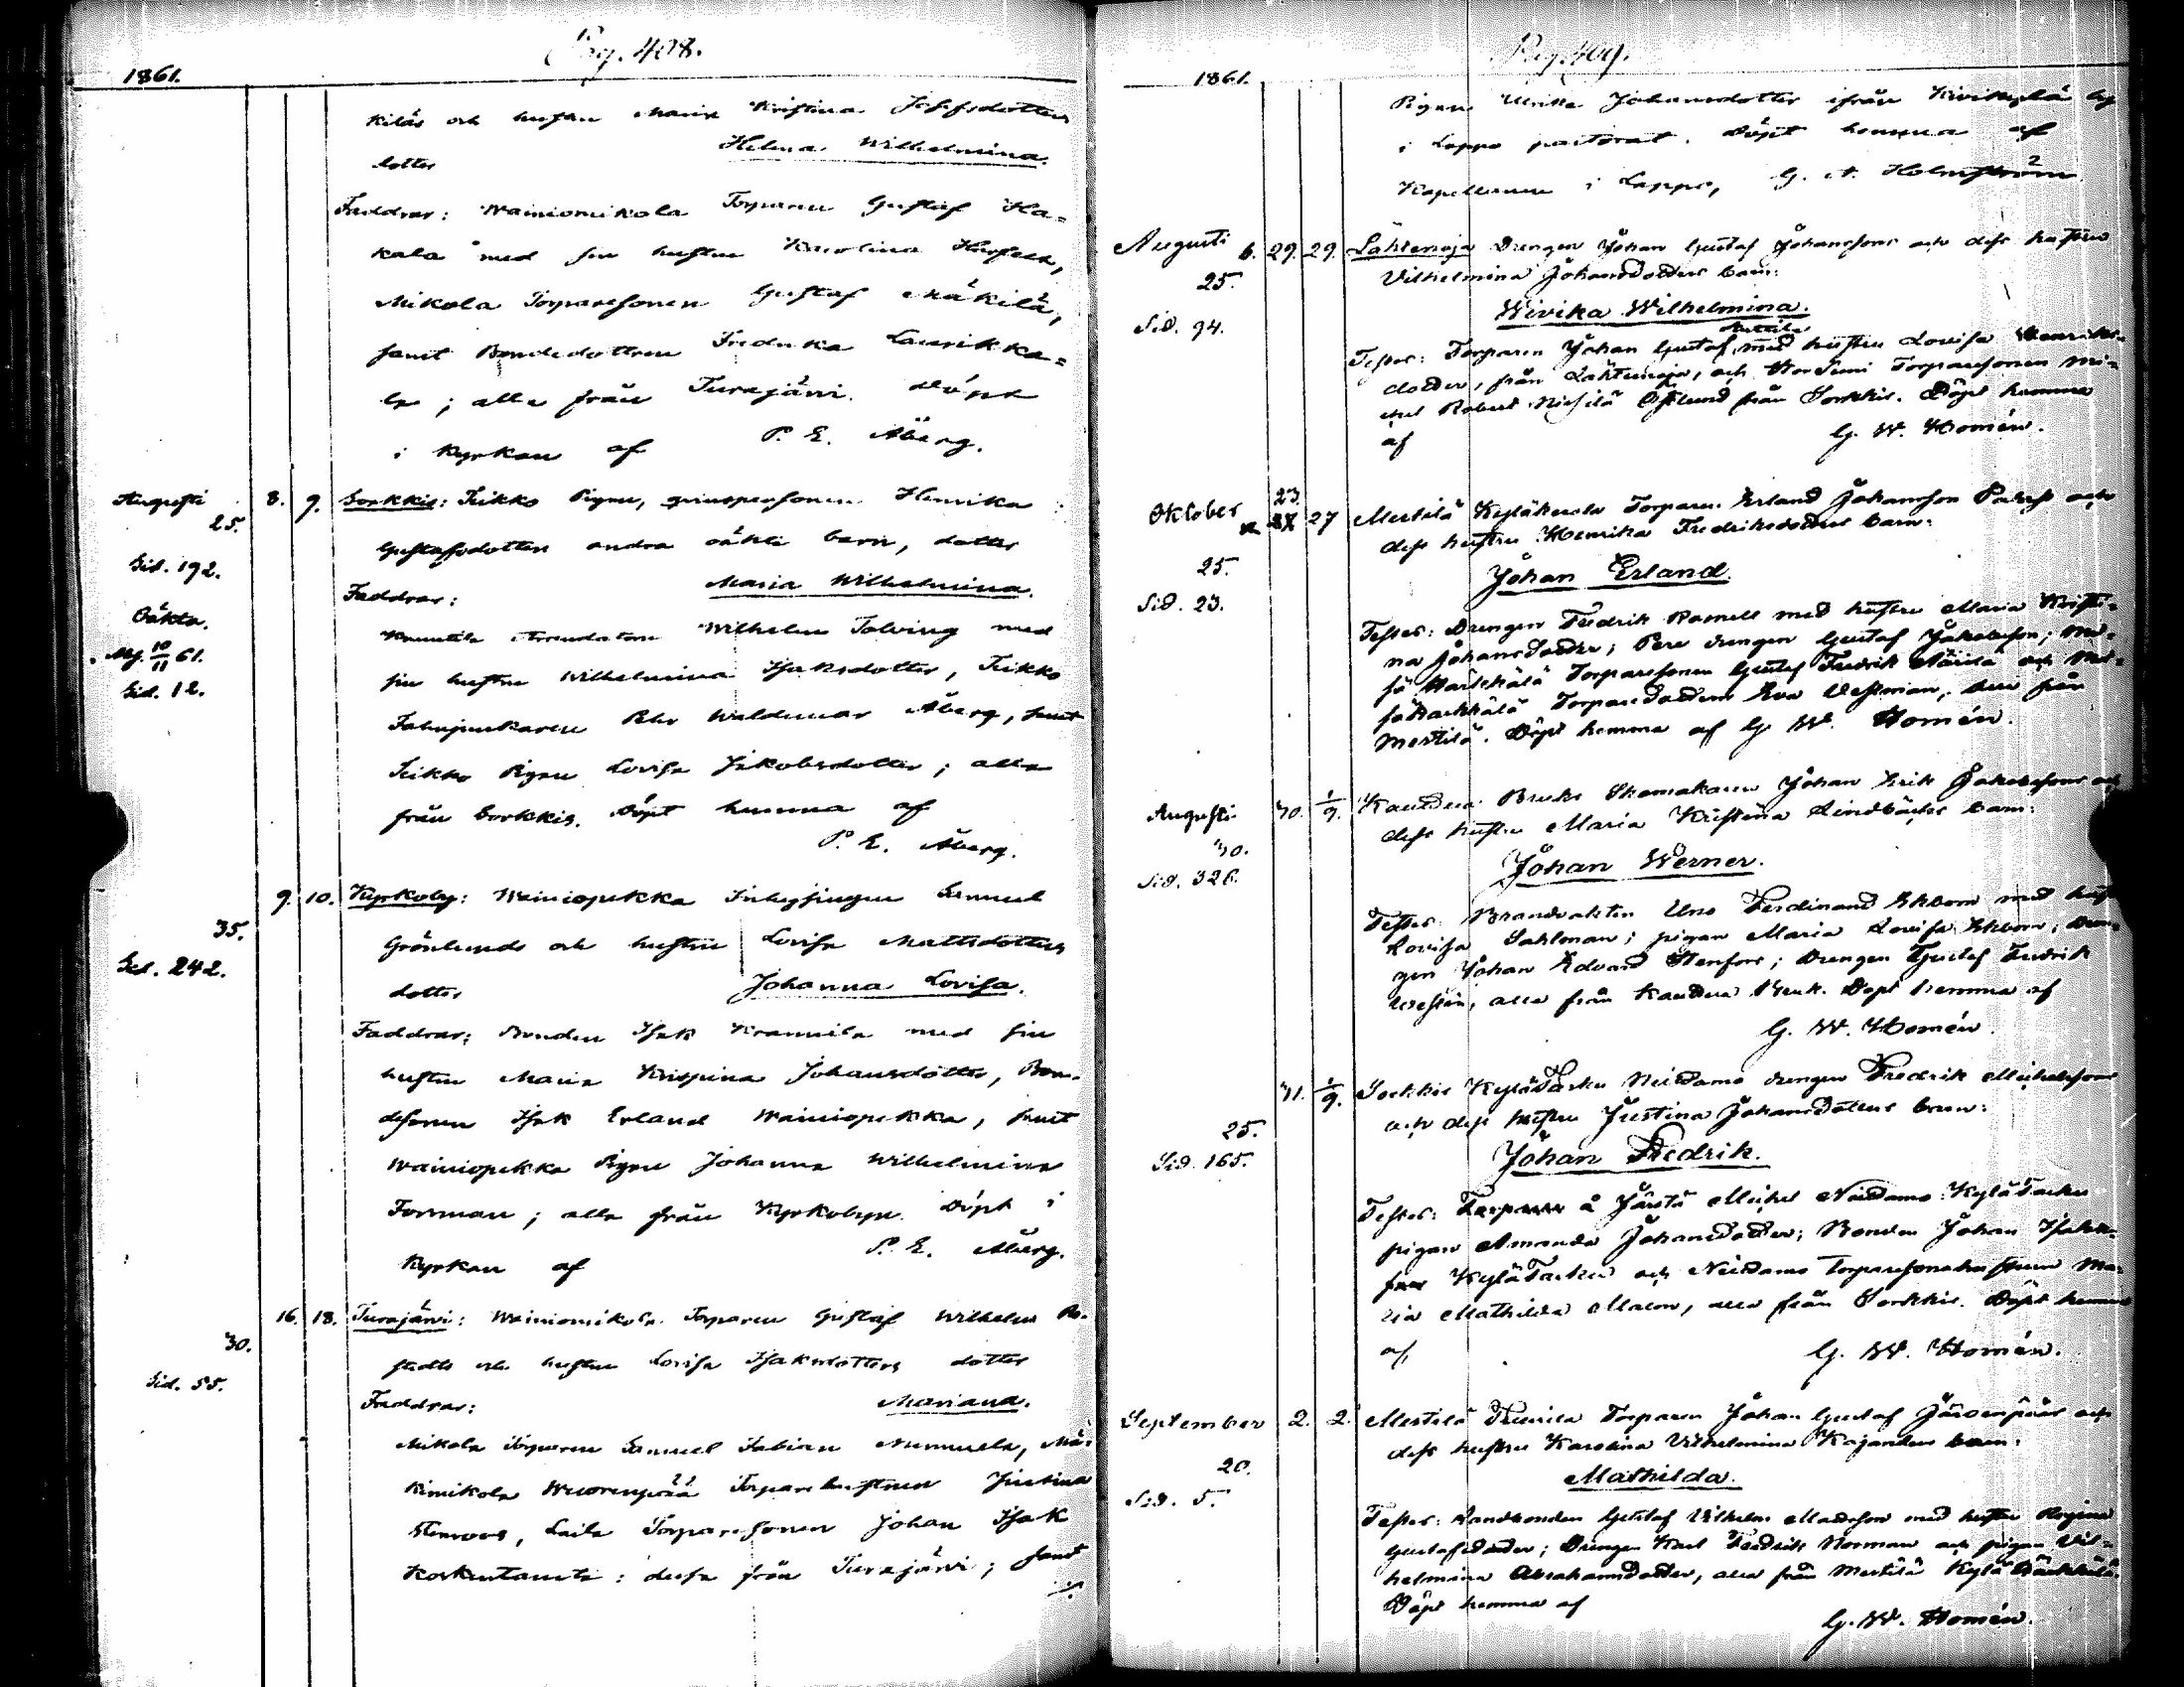 Pag. 408.
1861.
kiläs och hustru Maria Kristina Josefsdotters
dotter Helena Wilhelmina.
Faddrar: Wainiomikola Torparen Gustaf Ha=
kala med sin hustru Karolina
Mikola Torparesonen Gustaf Mäkilä,
samt Bondedottren Fredrika Laurikka=
la; alla från Turajärvi. Döpt
i Kyrkan af P. E. Åberg.
Augusti 8. 9. Sorkkis: Teikko Pigan, qvinspersonen Henrika
25.
Gustafsdotters andra oäkta barn, dotter
Sid. 192.
Maria Wilhelmina.
Oäkta.
Faddrar:
Arrendatorn Wilhelm Tolving med
10/11 61.
sin hustru Wilhelmina Isaksdotter, Teikko
Sid. 12.
Waldemar Åberg, samt
Teikko Pigan Lovisa Jakobsdotter; alla
från Sorkkis. Döpt hemma af
P. E. Åberg.
9. 10. Kyrkoby: Wainiopekka Inhysingen Samuel
35.
Grönlunds och hustru Lovisa Mattsdotters
Sid. 242.
dotter Johanna Lovisa.
Faddrar: Bonden Isak Krannila med sin
hustru Maria Kristina Johansdotter, Bon-
desonen Isak Erland Wainiopekka, samt
Wainiopekka Pigan Johanna Wilhelmina
Forsman; alla från Kyrkobyn. Döpt i
Kyrkan af P. E. Åberg.
16. 18. Turajärvi: Wainiomikola Torparen Gustaf Wilhelm
30.
och hustru Lovisa Isaksdotters dotter
Sid. 55.
Faddrar: Mariana.
Mikola Torparen Samuel Fabian Nummela, Mä-
kimikola Wuorenpää Torparehustrun Justina
Stenroos, Laila Torparesonen Johan Isak
Korkeutausta: dessa från Turajärvi; samt
Pag. 409.
1861.
Pigan Ulrika Johansdotter ifrån Kivikylä by
i Lappo pastorat. Döpt hemma af
Kapellanen i Lappo, G. A. Holmström
Augusti 6. 29. 29. Lähteenoja Drengen Johan Gustaf Johanssons och dess hustru
25.
Vilhelmina Johansdotters barn:
Sid. 94.
Wivika Wilhelmina.
Testes: Torparen Johan Gustaf med hustru Lovisa Henriks-
dotter, från Lähteenoja, och Torparesonen Mi-
chel Robert Östlund från Sorkkis. Döpt hemma
af G. W. Homén.
Oktober 23 27 Mestilä Kyläkarsta Torparen Erland Johansson och
25.
dess hustru Henrika Fredriksdotters barn:
Sid. 23.
Johan Erland.
Testes: Drengen Fredrik Ramell med hustru Maria Kristi-
na Johansdotter; Pere drengen Gustaf Jakobsson;
Torparesonen Gustaf Fredrik och
Torparedottern Eva Vestman, alla från
Mestilä. Döpt hemma af G. W. Homén.
Augusti 30. 1/9. Kauttua Bruks Skomakaren Johan Erik Jakobssons och
30.
dess hustru Maria Kristina Lindbäcks barn:
Sid. 326.
Johan Werner.
Testes: Brandvakten Uno Ferdinand Ekbom med hustru
Lovisa Sahlman; pigan Maria Lovisa Ekbom; Dren-
gen Johan Edvard Stenfors; Drengen Gustaf Fredrik
alla från Kauttua Bruk. Döpt hemma af
G. W. Homén.
31. 1/9. Sorkkis Kylä Tarkku Neidamo drengen Fredrik Michelssons
25.
och dess hustru Justina Johansdotters barn:
Sid. 165.
Johan Fredrik.
Testes: Torparen å Michel Neidamo Kylä Tarkku
pigan Amanda Johansdotter; Bonden Johan Isaks-
son Kylä Tarkku och Neidamo Torparesonehustrun Ma-
ria Mathilda Malen, alla från Sorkkis. Döpt hemma
af G. W. Homén.
September 2. 2. Mestilä Torparen Johan Gustaf Järvenpääs och
20.
dess hustru Karolina Vilhelmina Kajanders barn:
Sid. 5.
Mathilda.
Testes: Landbonden Gustaf Vilhelm Mattsson med hustru Regina
Gustafsdotter; Drengen Karl Fredrik Norrman och pigan Vil-
helmina Abrahamsdotter, alla från Mestilä
Döpt hemma af
G. W. Homén.